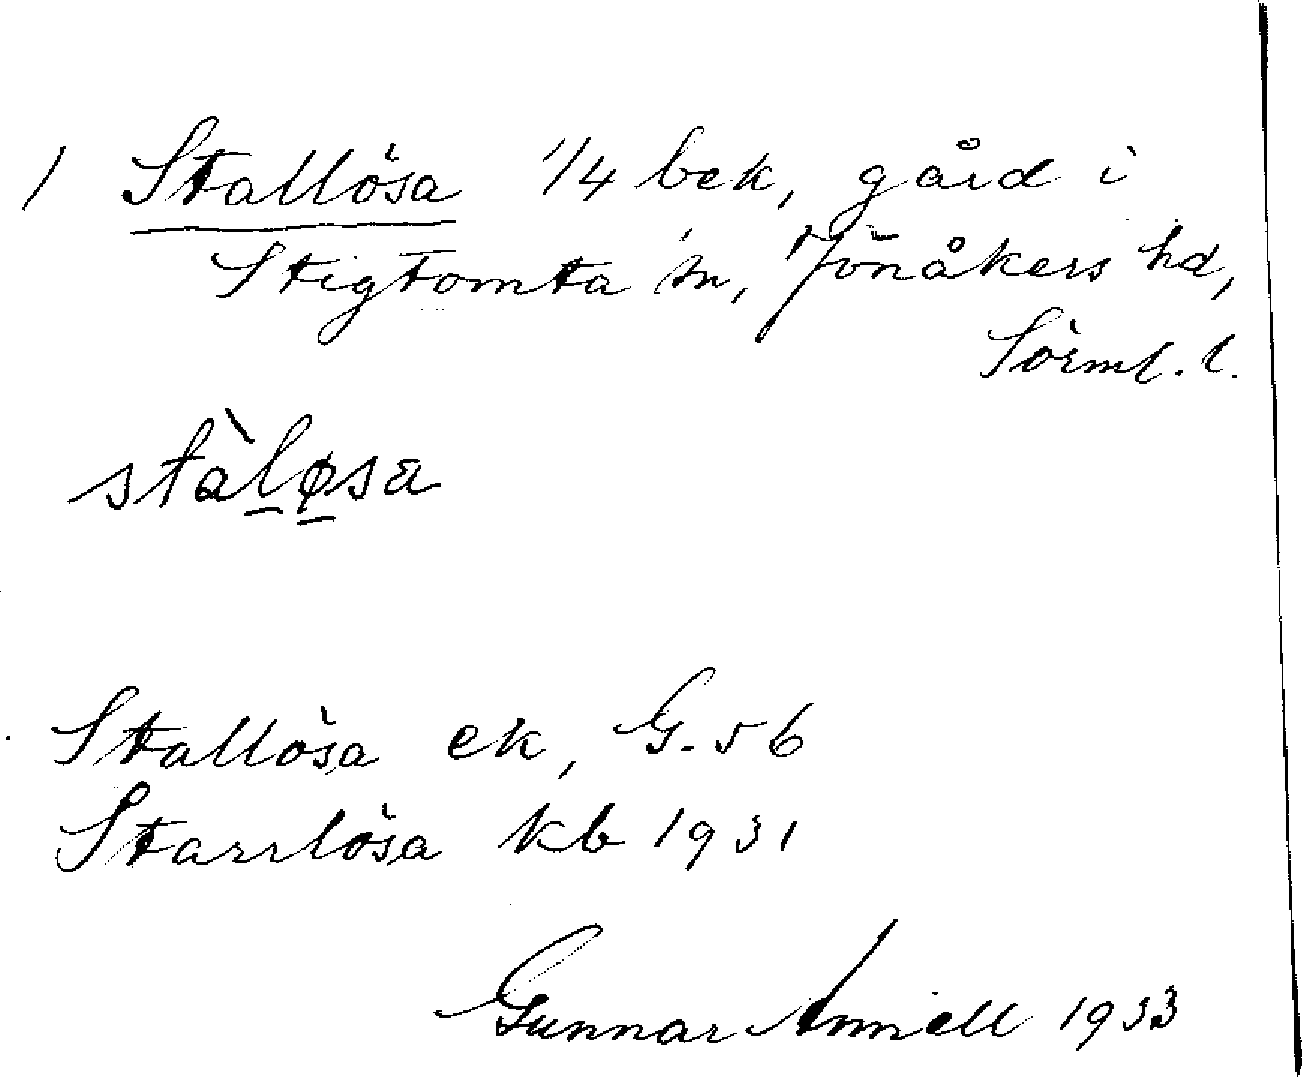 1 Stallösa 1/4 bek, gård i
Stigtomta sn, Jönåkers hd,
Sörml. l.
stàløsa
Stallösa ek, G. 56
Starrlösa kb 1931
Gunnar Anniell 1933